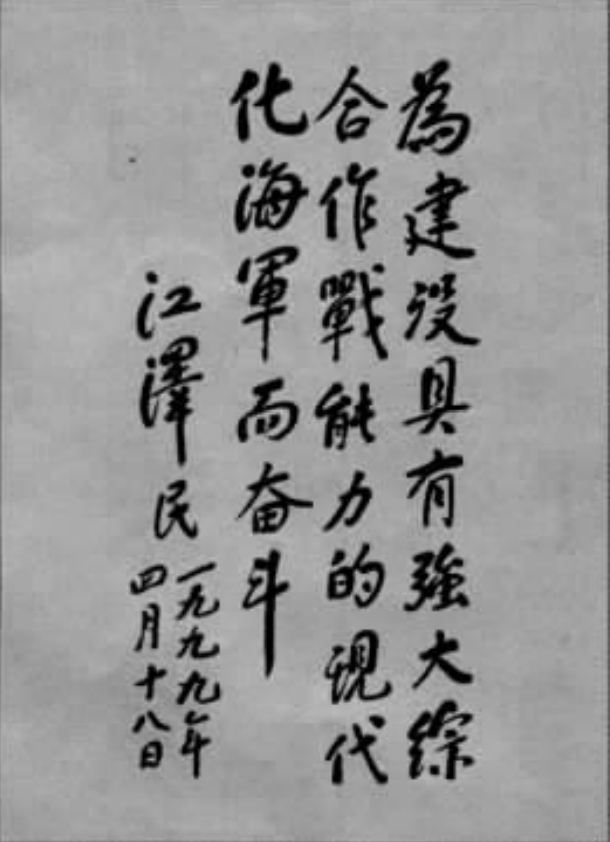 為建設具有強大綜
合作戰能力的現代
化海軍而奋斗
江澤民
一九九九年
四月十八日